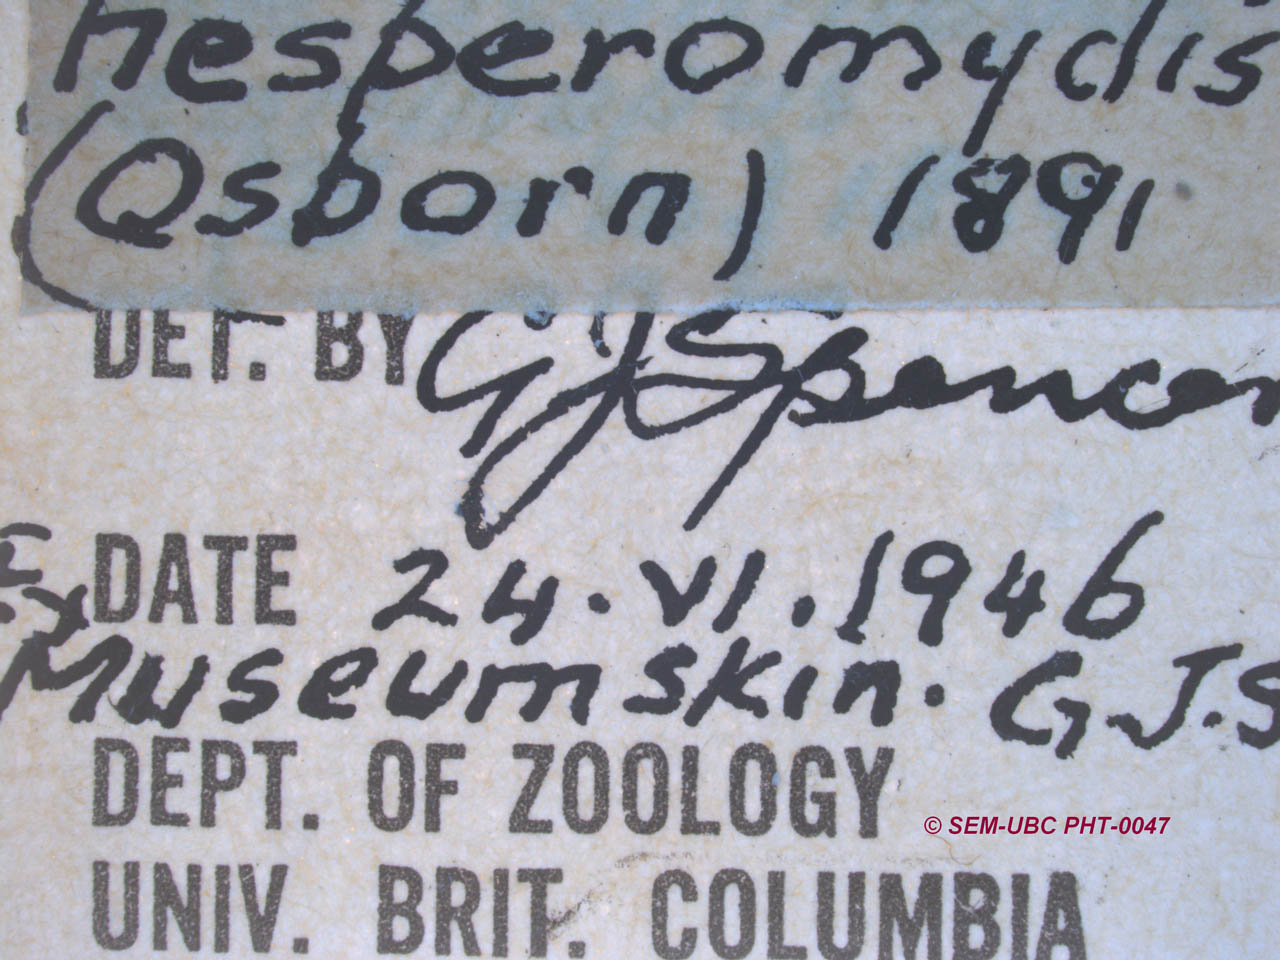 hesperomydis
(Osborn) 1891
DET. BY G J Spencer
DATE 24.VI.1946
Ex
Museum skin. G.J.S
DEPT. OF ZOOLOGY
© SEM-UBC PHT-0047
UNIV. BRIT. COLUMBIA